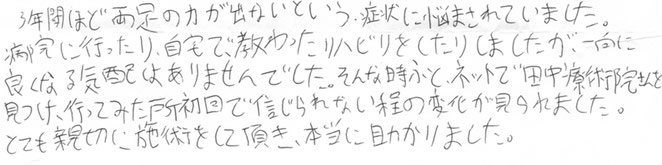 3年間ほど両足の力が出ないという症状に悩まされていました。
病院に行ったり、自宅で教わったリハビリをしたりしましたが、一向に
良くなる気配はありませんでした。そんな時ふと、ネットで田中療術院さんを
見つけ、行ってみた所初回で信じられない程の変化が見られました。
とても親切に施術をして頂き、本当に助かりました。